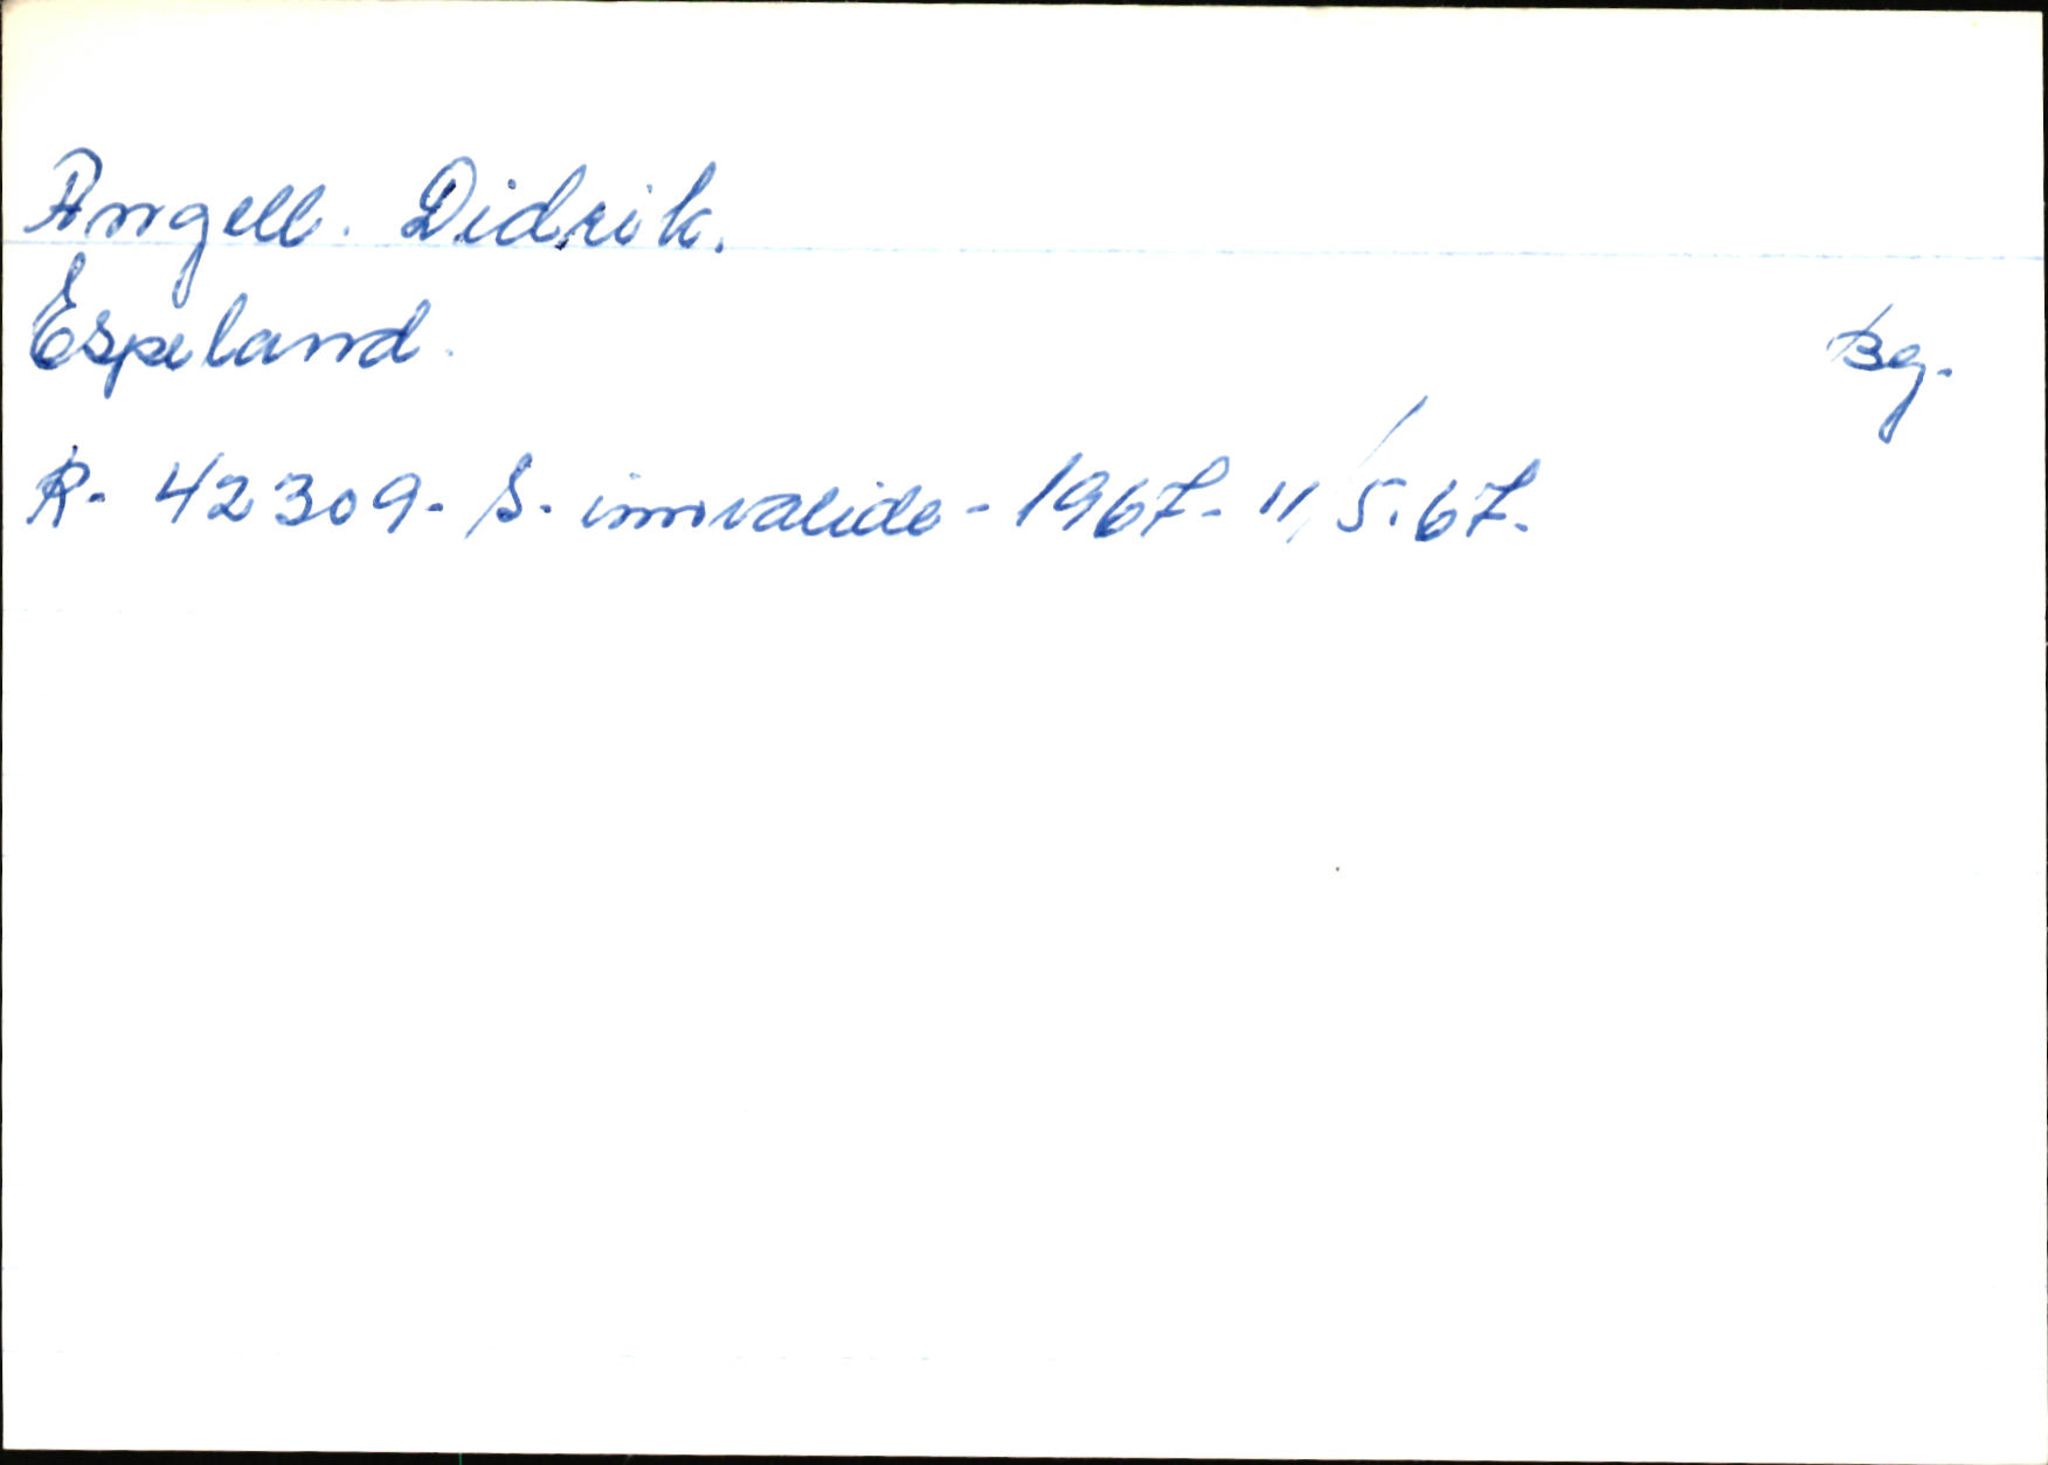 Angell. Didrik.
Espeland. Bg.
R. 42309. S. innvalide - 1967. 11/5.67.